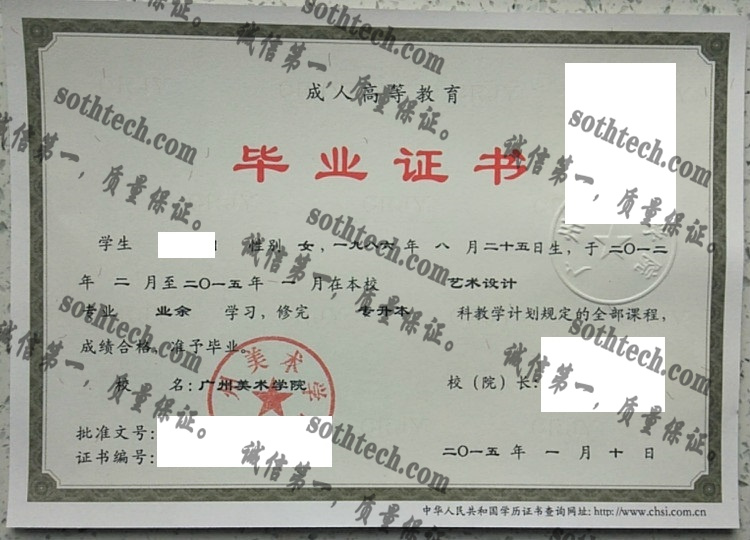 成人高等教育
毕业证书
学生 性别 女,一九八六年 八 月二十五日生,于二〇一二
年 二 月至二〇一五年 一 月在本校 艺术设计
专业 业余 学习,修完 专升本 科教学计划规定的全部课程,
成绩合格,准予毕业。
校 名:广州美术学院
校(院)长:
批准文号:
证书编号:
二〇一五年 一 月 十 日
中华人民共和国学历证书查询网址: http://www.chsi.com.cn
州美术学
sothtech.com
诚信第一,质量保证。
sothtech.com
诚信第一,质量保证。
sothtech.com
诚信第一,质量保证。
sothtech.com
诚信第一,质量保证。
sothtech.com
诚信第一,质量保证。
sothtech.com
诚信第一,质量保证。
sothtech.com
诚信第一,质量保证。